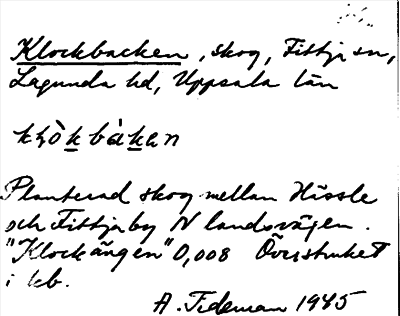 Klockbacken, skog, Fittja sn,
Lagunda hd, Uppsala län
kḷòk bàkan
Planterad skog mellan Hässle
och Fittja by N landsvägen.
"Klockängen" 0,008 Överstruket
i kb.
A. Tideman 1945